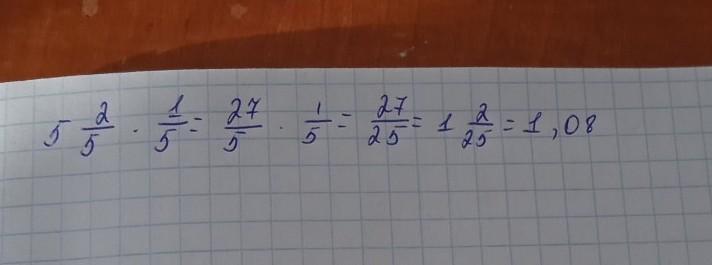 5 2/5 · 1/5 = 27/5 · 1/5 = 27/25 = 1 2/25 = 1,08